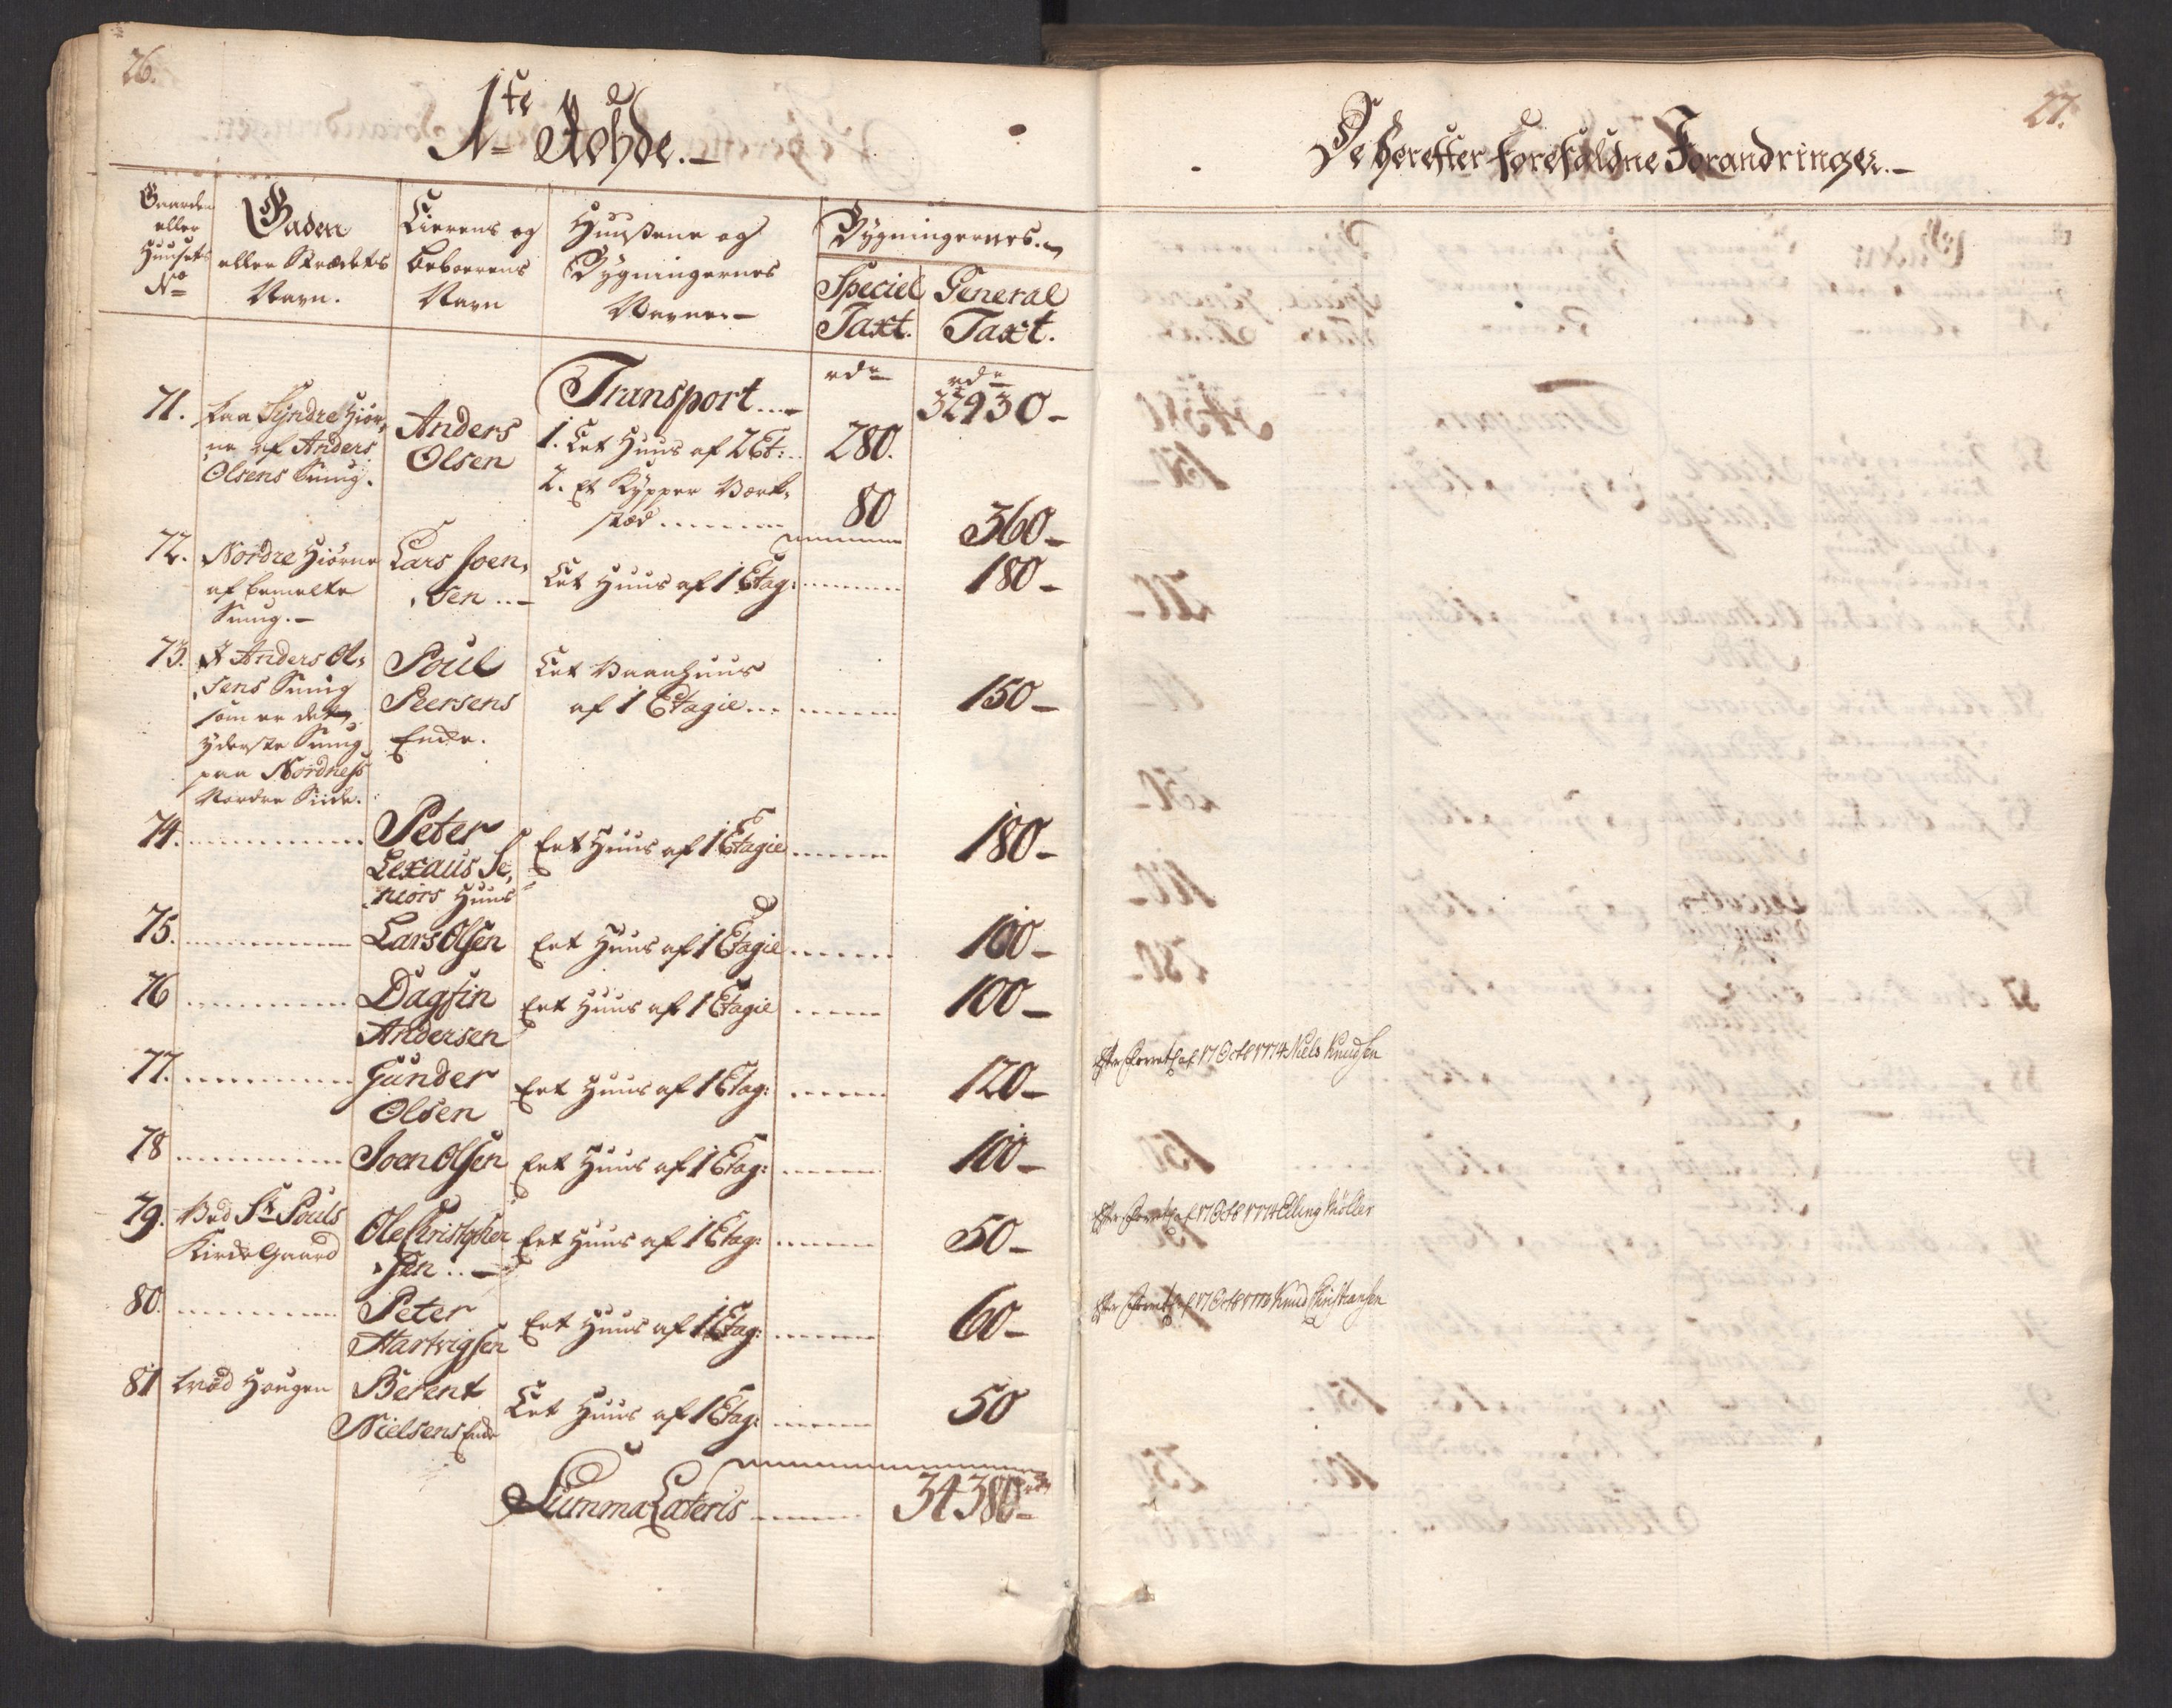 26.
1te Rohde.
Gaarden eller Huusets No
Gaden eller Strædets Navn.
Eierens og Beboerens Navn
Huusene og Bygningernes Navne
Bygningernes
Speciel Taxt.
General Taxt.
Transport
rdr
rdr
32930
71. paa Syndre Hiør,
ne af Anders
Olsens Smug.
Anders
Olsen
1. Eet Huus af 2 Et:
280.
2. Et Kypper Værk,
sted
80
360
72. Nordre Hiørne
af bemelte
Smug.
Lars Joen,
sen
Eet Huus af 1 Etag:
180
73. I Anders Ol,
sens Smug
som er det
yderste Smug
paa Nordness
Nordre Siide.
Poul
Peersens
Enke.
Eet Vaanhuus
af 1 Etagie
150
74.
Peter
Lexaus Se,
niors Huus
Eet Huus af 1 Etagie
180
75.
Lars Olsen
Eet Huus af 1 Etagie
100
76
Dagfin
Andersen
Eet Huus af 1 Etagie
100
77.
Gunder
Olsen
Eet Huus af 1 Etag:
120
78
Joen Olsen
Eet Huus af 1 Etag:
100
79. Ved St. Pouls
Kirke Gaard
Ole Christopher
sen
Eet Huus af 1 Etag:
50
80.
Peter
Hartvigsen
Eet Huus af 1 Etag:
60
81 ved Haugen
Berent
Nielsens Enke
Eet Huus af 1 Etag:
50
Summa Lateris
34380 rdr
27.
De herefter forefaldne Forandringer.
17 Octb 1774 Niels Knudsen
17 Octb 1774 Elling Møller
17 Octb Knud Christiansen